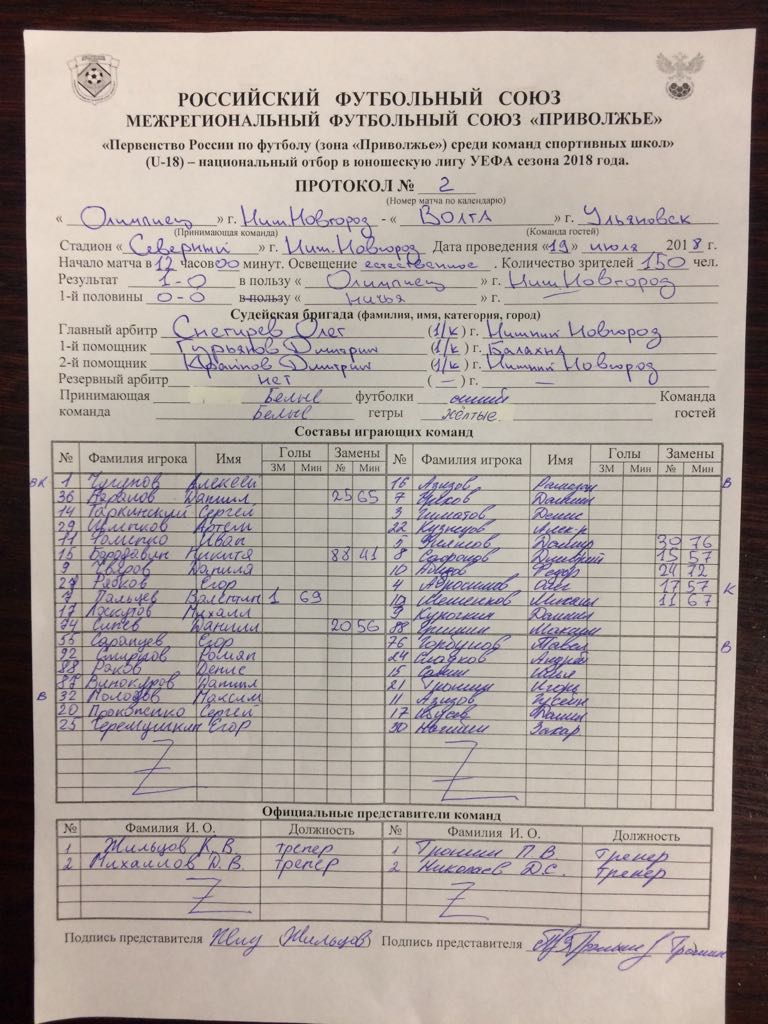 РОССИЙСКИЙ ФУТБОЛЬНЫЙ СОЮЗ
МЕЖРЕГИОНАЛЬНЫЙ ФУТБОЛЬНЫЙ СОЮЗ «ПРИВОЛЖЬЕ»
«Первенство России по футболу (зона «Приволжье») среди команд спортивных школ»
(U-18) – национальный отбор в юношескую лигу УЕФА сезона 2018 года.
ПРОТОКОЛ № 2
(Номер матча по календарю)
« Олимпиец » г. Ниш.Новгород - « ВОЛГА » г. Ульяновск
(Принимающая команда) (Команда гостей)
Стадион « Северный » г. Ниш.Новгород Дата проведения «19» июля 2018 г.
Начало матча в 12 часов 00 минут. Освещение естественное. Количество зрителей 150 чел.
Результат 1-0 в пользу « Олимпиец » г. Ниш.Новгород
1-й половины 0-0 в пользу « ничья » г.
Судейская бригада (фамилия, имя, категория, город)
Главный арбитр Снегирев Олег (1/к) г. Нижний Новгород
1-й помощник Гурьянов Дмитрий (1/к) г. Балахна
2-й помощник Дмитрий (1/к) г. Нижний Новгород
Резервный арбитр нет ( – ) г. –
Принимающая Белые футболки синий Команда
команда Белые гетры жёлтые гостей
Составы играющих команд
№ Фамилия игрока Имя Голы Замены № Фамилия игрока Имя Голы Замены
ЗМ Мин № Мин ЗМ Мин № Мин
вк 1 Чугунов Алексей 16 Азизов Рамазан В
36 Даниил 25 65 7
14 Таркинский Сергей 3 Денис
29 Артем 22 Кузнецов Алек-р
11 Фоменко Иван 5 30 76
15 Бородавин Никита 88 41 8 Сафонов Дмитрий 15 57
9 Уваров Данила 10 Федор 24 72
27 Рябков Егор 4 Абросимов Олег 17 57
7 Пальцев Валентин 1 69 Михаил 11 67 К
17 Лоскутов Михаил 9 Курочкин Даниил
74 Даниил 20 56 88 Гришин Максим
55 Сарапцев Егор 76 Горбунов Павел В
92 Роман 24 Сладков Андрей
88 Раков Денис 15 Илья
87 Винокуров Даниил 21 Тронин Игорь
В 32 Молодов Максим 11 Азизов Гусейн
20 Прокопенко Сергей 17
25 Черемушкин Егор 30 Захар
Z Z
Официальные представители команд
№ Фамилия И. О. Должность № Фамилия И. О. Должность
1 Жильцов К. В. тренер 1 Тронин П. В. тренер
2 Михайлов Д. В. тренер 2 Николаев Д.С. тренер
Z Z
Подпись представителя Жильцов Подпись представителя Тронин